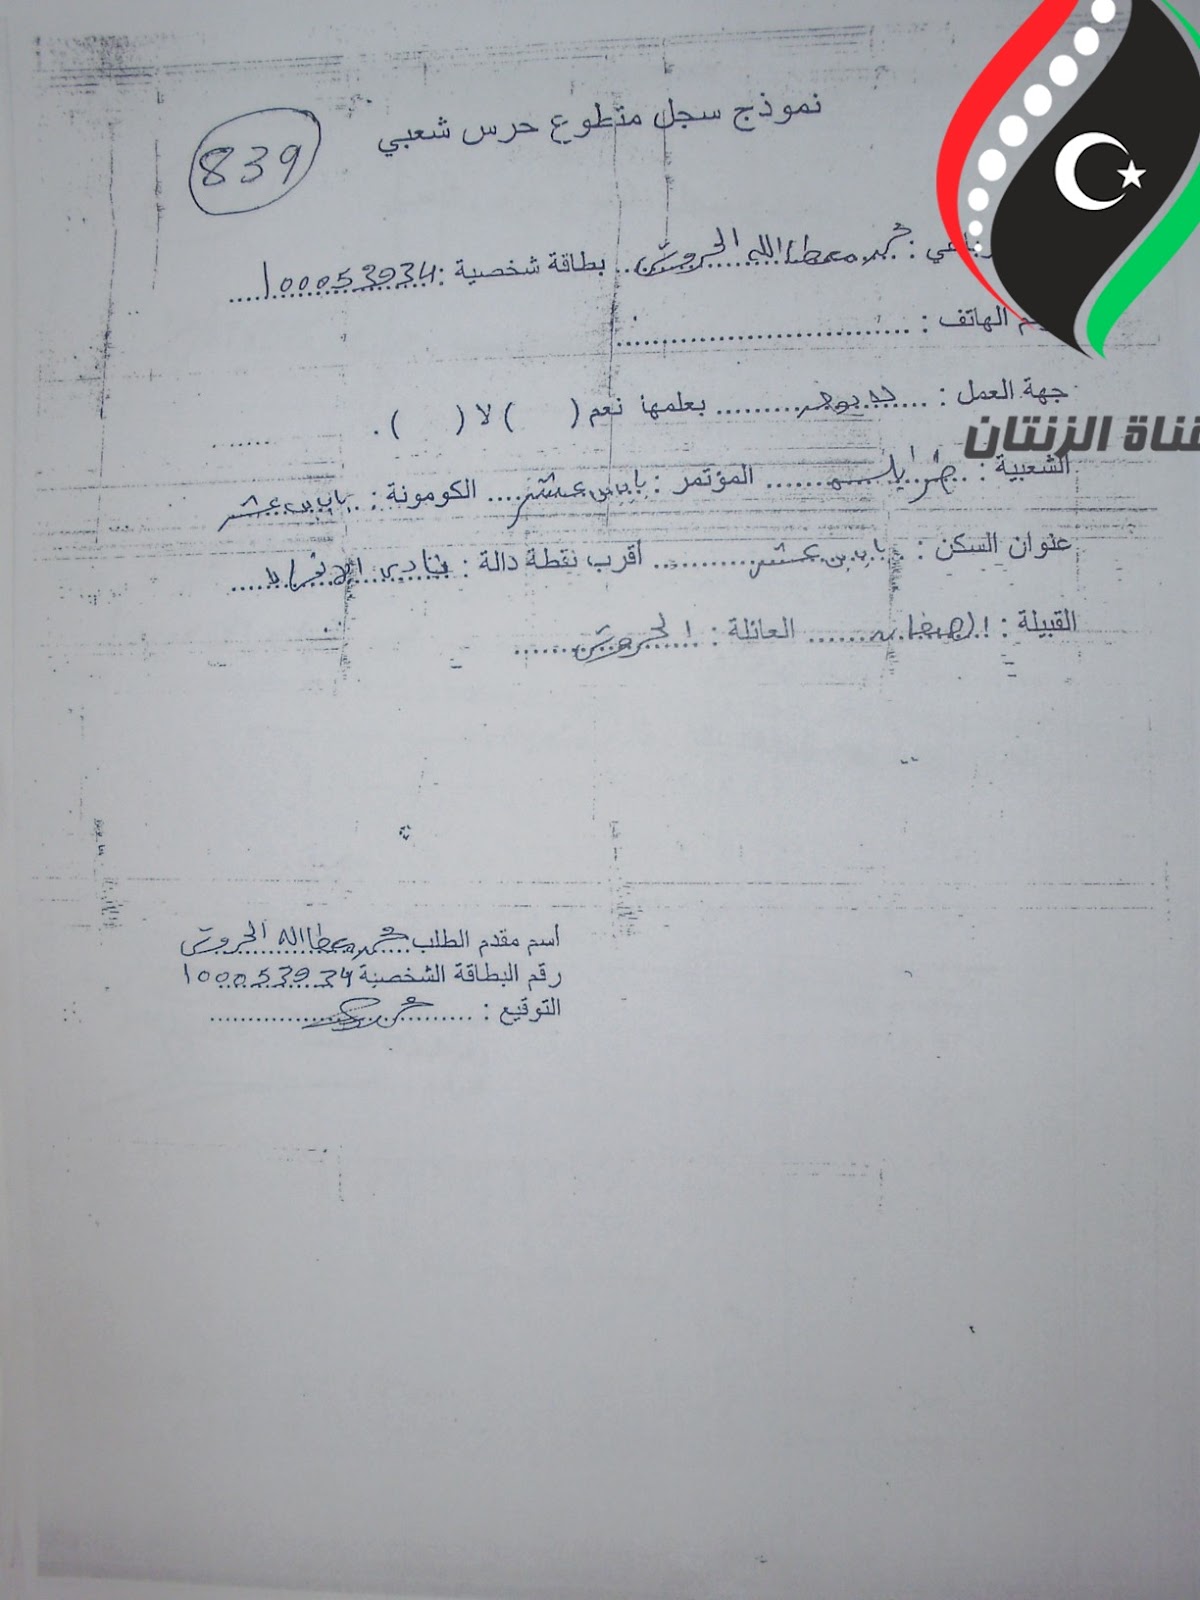 نموذج سجل متطوع حرس شعبي
839
رباعي : محمد عطا الله الحروش بطاقة شخصية : 100053934
رقم الهاتف :
جهة العمل : بعلمها نعم ( ) لا ( ) .
قناة الزنتان
الشعبية : طرابلس المؤتمر : باب بن غشير الكومونة : باب بن غشير
عنوان السكن : باب بن غشير أقرب نقطة دالة : نادي
القبيلة : العائلة : الحروش
أسم مقدم الطلب محمد عطا الله الحروش
رقم البطاقة الشخصية 100053934
التوقيع :